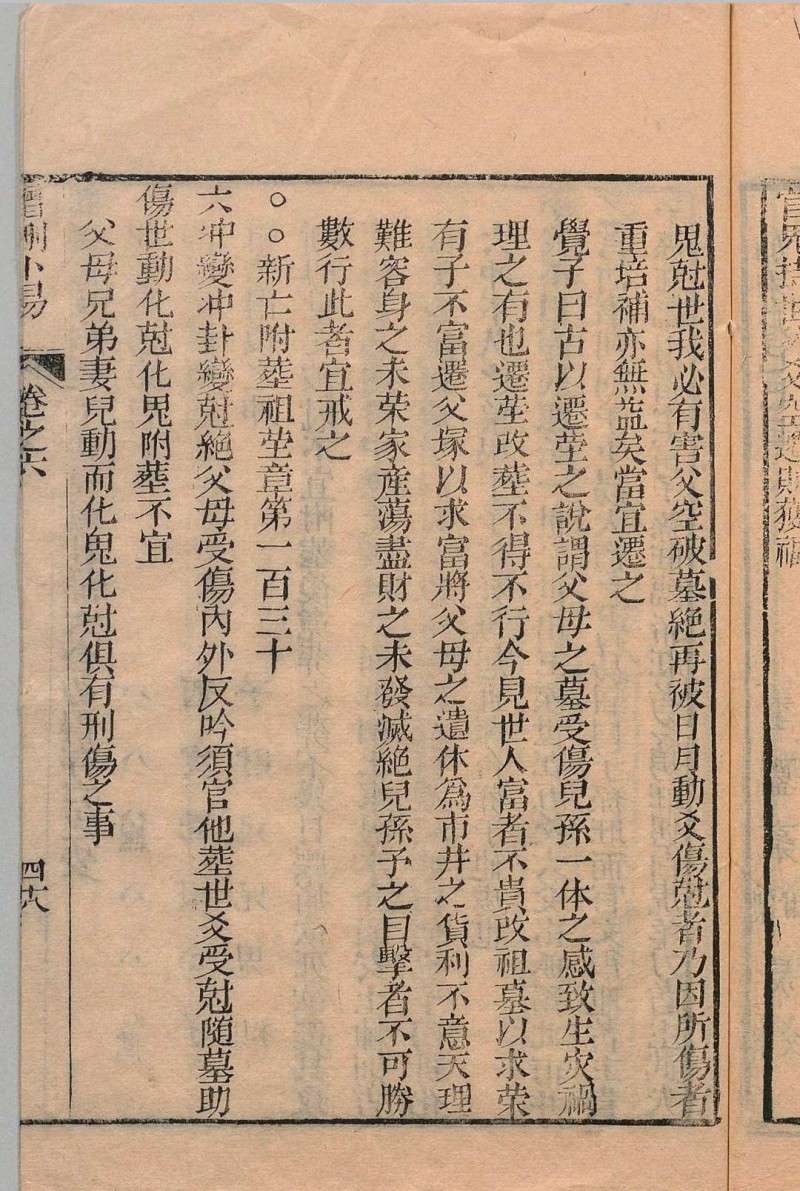 鬼尅世我必有害父空破墓絕再被日月動爻傷尅者乃因所傷者
重培補亦無益矣當宜遷之
覺子曰古以遷塋之說謂父母之墓受傷兒孫一体之感致生灾禍
理之有也遷塋改塟不得不行今見世人富者不貴改祖墓以求荣
有子不富遷父塚以求富將父母之遺体為市井之貨利不意天理
難容身之未荣家産蕩盡財之未發滅絕兒孫予之目擊者不可勝
數行此者宜戒之
○○新亡附塟祖塋章第一百三十
六冲變冲卦變尅絕父母受傷內外反吟須官他塟世爻受尅隨墓助
傷世動化尅化鬼附塟不宜
父母兄弟妻兒動而化鬼化尅俱有刑傷之事
增刪卜易
卷之六
四十八